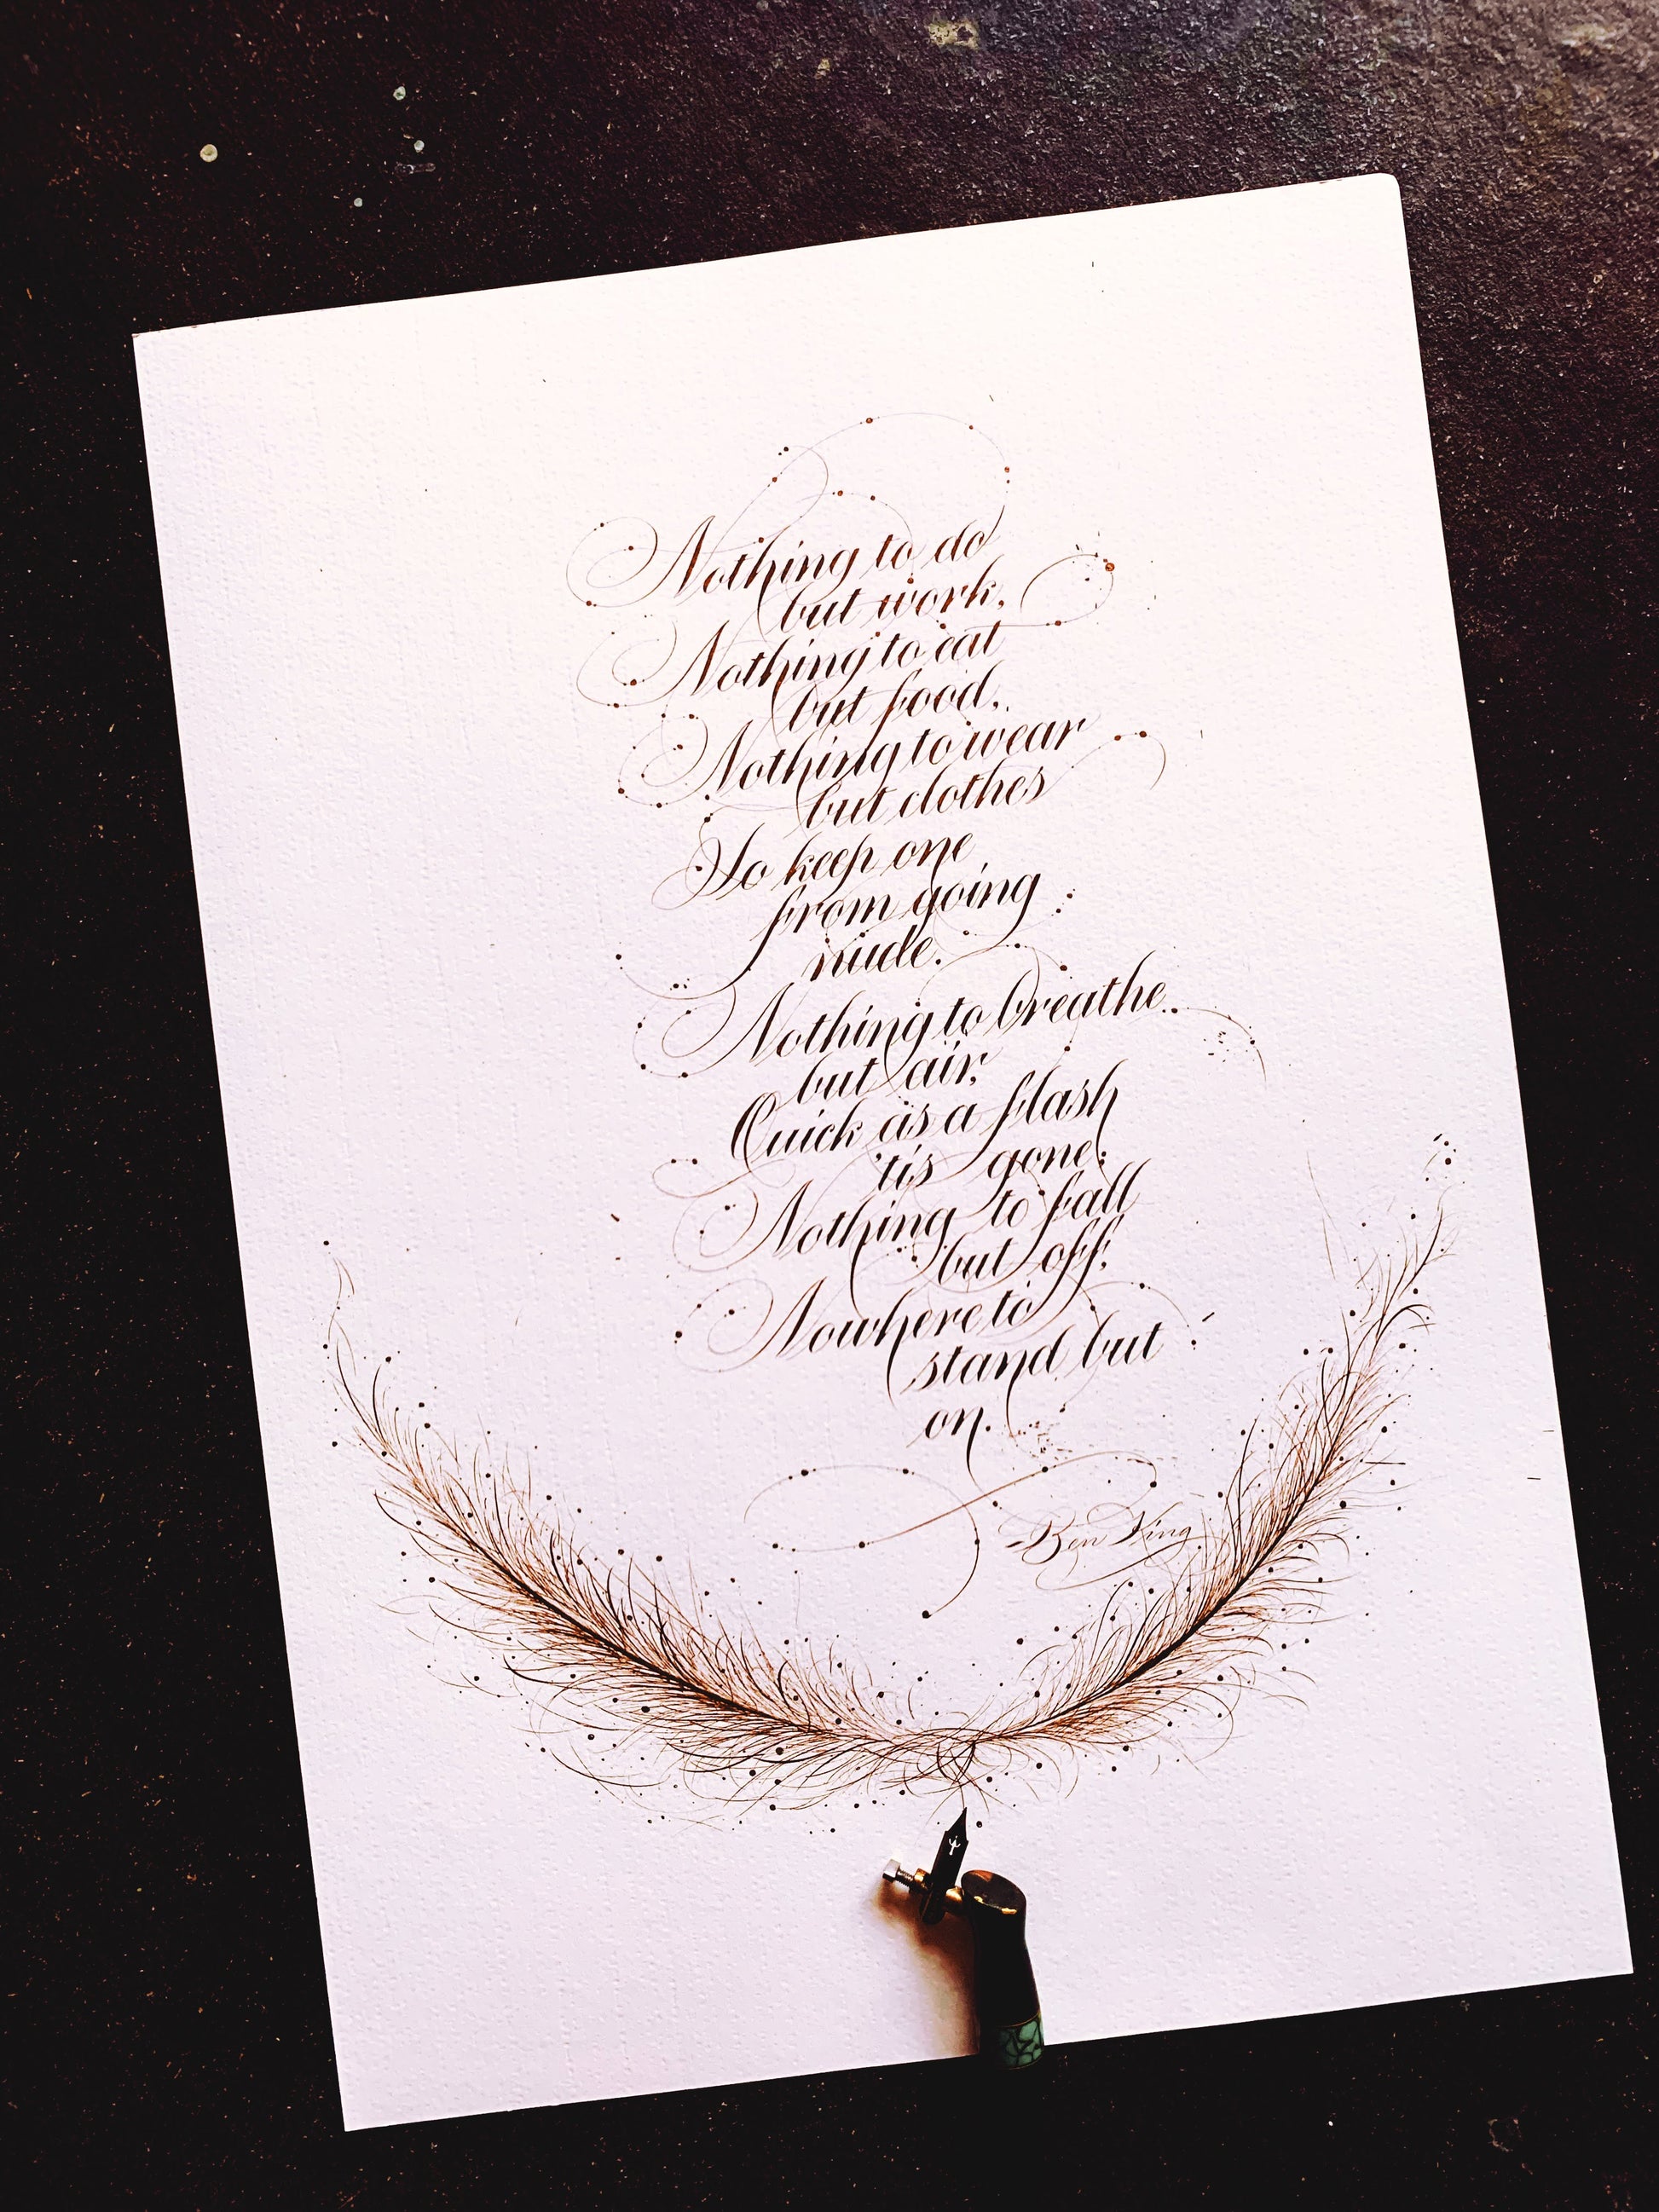 Nothing to do
but work,
Nothing to eat
but food,
Nothing to wear
but clothes
To keep one
from going
nude.
Nothing to breathe
but air,
Quick as a flash
'tis gone;
Nothing to fall
but off,
Nowhere to
stand but
on.
-Ben King